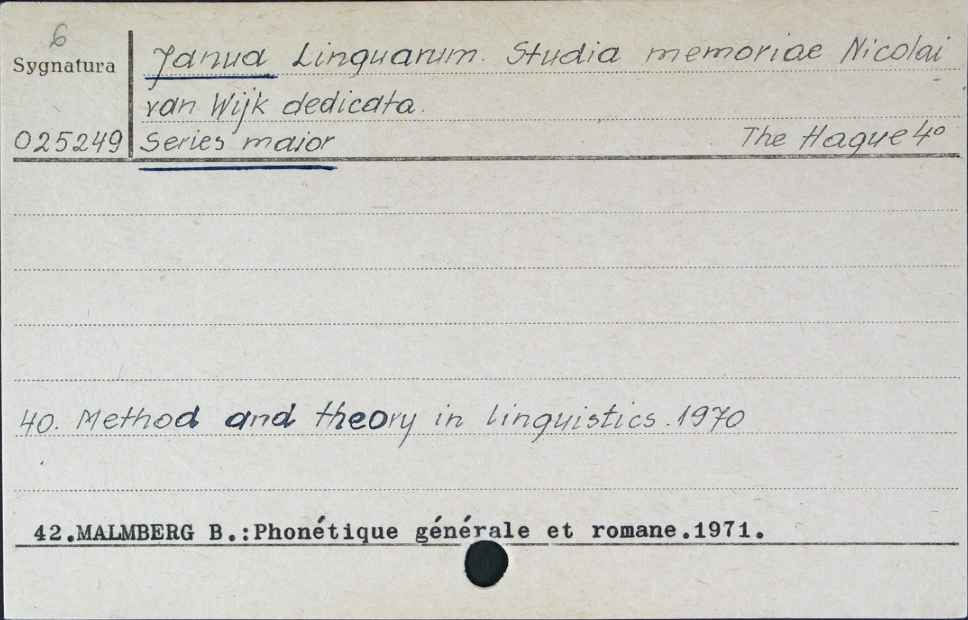 6
Sygnatura
025249
Janua Linguarum. Studia memoriae Nicolai
van Wijk dedicata.
Series maior The Hague 4°
40. Method and theory in linguistics. 1970
42.MALMBERG B.:Phonétique générale et romane.1971.